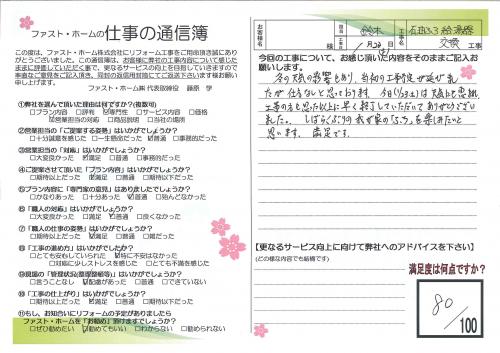 ファスト・ホームの仕事の通信簿
この度は、ファスト・ホーム株式会社にリフォーム工事をご用命頂き誠にあり
がとうございました。この通信簿は、お客様に弊社の工事内容について感じた
ままに評価していただく事で、更なるサービスの向上を目指していますので
率直なご意見をご記入頂き、同封の返信用封筒にてご送下さいます様お願い
申し上げます。
ファスト・ホーム㈱ 代表取締役 藤原 学
①弊社を選んで頂いた理由は何ですか?(複数可)
□プラン内容 □評判 ☑専門性 □サービスの良さ
☑営業担当の対応 □商品説明 □当社の場所
②営業担当の「ご提案する姿勢」はいかがでしょうか?
□十分誠意を感じた □一生懸命だった ☑普通 □事務的
③営業担当の「対応」はいかがでしょうか?
□大変良かった ☑満足 □普通 □事務的だった
④ご提案させて頂いた「プラン内容」はいかがでしょうか?
□期待以上だった ☑満足 □普通 □期待以下だった
⑤プラン内容に「専門家の意見」はありましたでしょうか?
□かなりあった □十分あった ☑普通 □殆んどなかった
⑥「職人の対応」はいかがでしょうか?
□大変良かった ☑満足 □普通 □良くなかった
⑦「職人の仕事の姿勢」はいかがでしょうか?
□期待以上だった □満足 ☑普通 □期待以下だった
⑧「工事の進め方」はいかがでしょうか?
□とても安心していられた ☑特に不安はなかった
□対応に少しストレスを感じた □とても不満を感じた
⑨現場の「管理状況(整理整頓等)」はいかがでしょうか?
□言うことなし ☑配慮があった □普通 □できていない
⑩「工事の仕上がり」はいかがでしょうか?
□期待以上だった ☑満足 □普通 □期待以下だった
⑪もし、お知合いにリフォームの予定がありましたら
ファスト・ホームを「お勧め」頂けますでしょうか?
□ぜひ勧めたい ☑勧めてもいい □わからない □勧められない
お客様名
鈴木
様
担当
工事
1月23日
工事名
石油ふろ給湯器
交換
工事
今回の工事について、お感じ頂いた内容をそのままご記入お
願いします。
冬の天気の影響もあり、当初の工事予定が延びまし
たが仕方ないと思っております。
工事の方も思った以上に早く終了していただいてありがとうござい
ました。しばらくぶりの我が家の「ふろ」を楽しみたいと
思います。 満足です。
【更なるサービス向上に向けて弊社へのアドバイスを下さい】
(どの様な内容でも結構です)
満足度は何点ですか?
80
/100